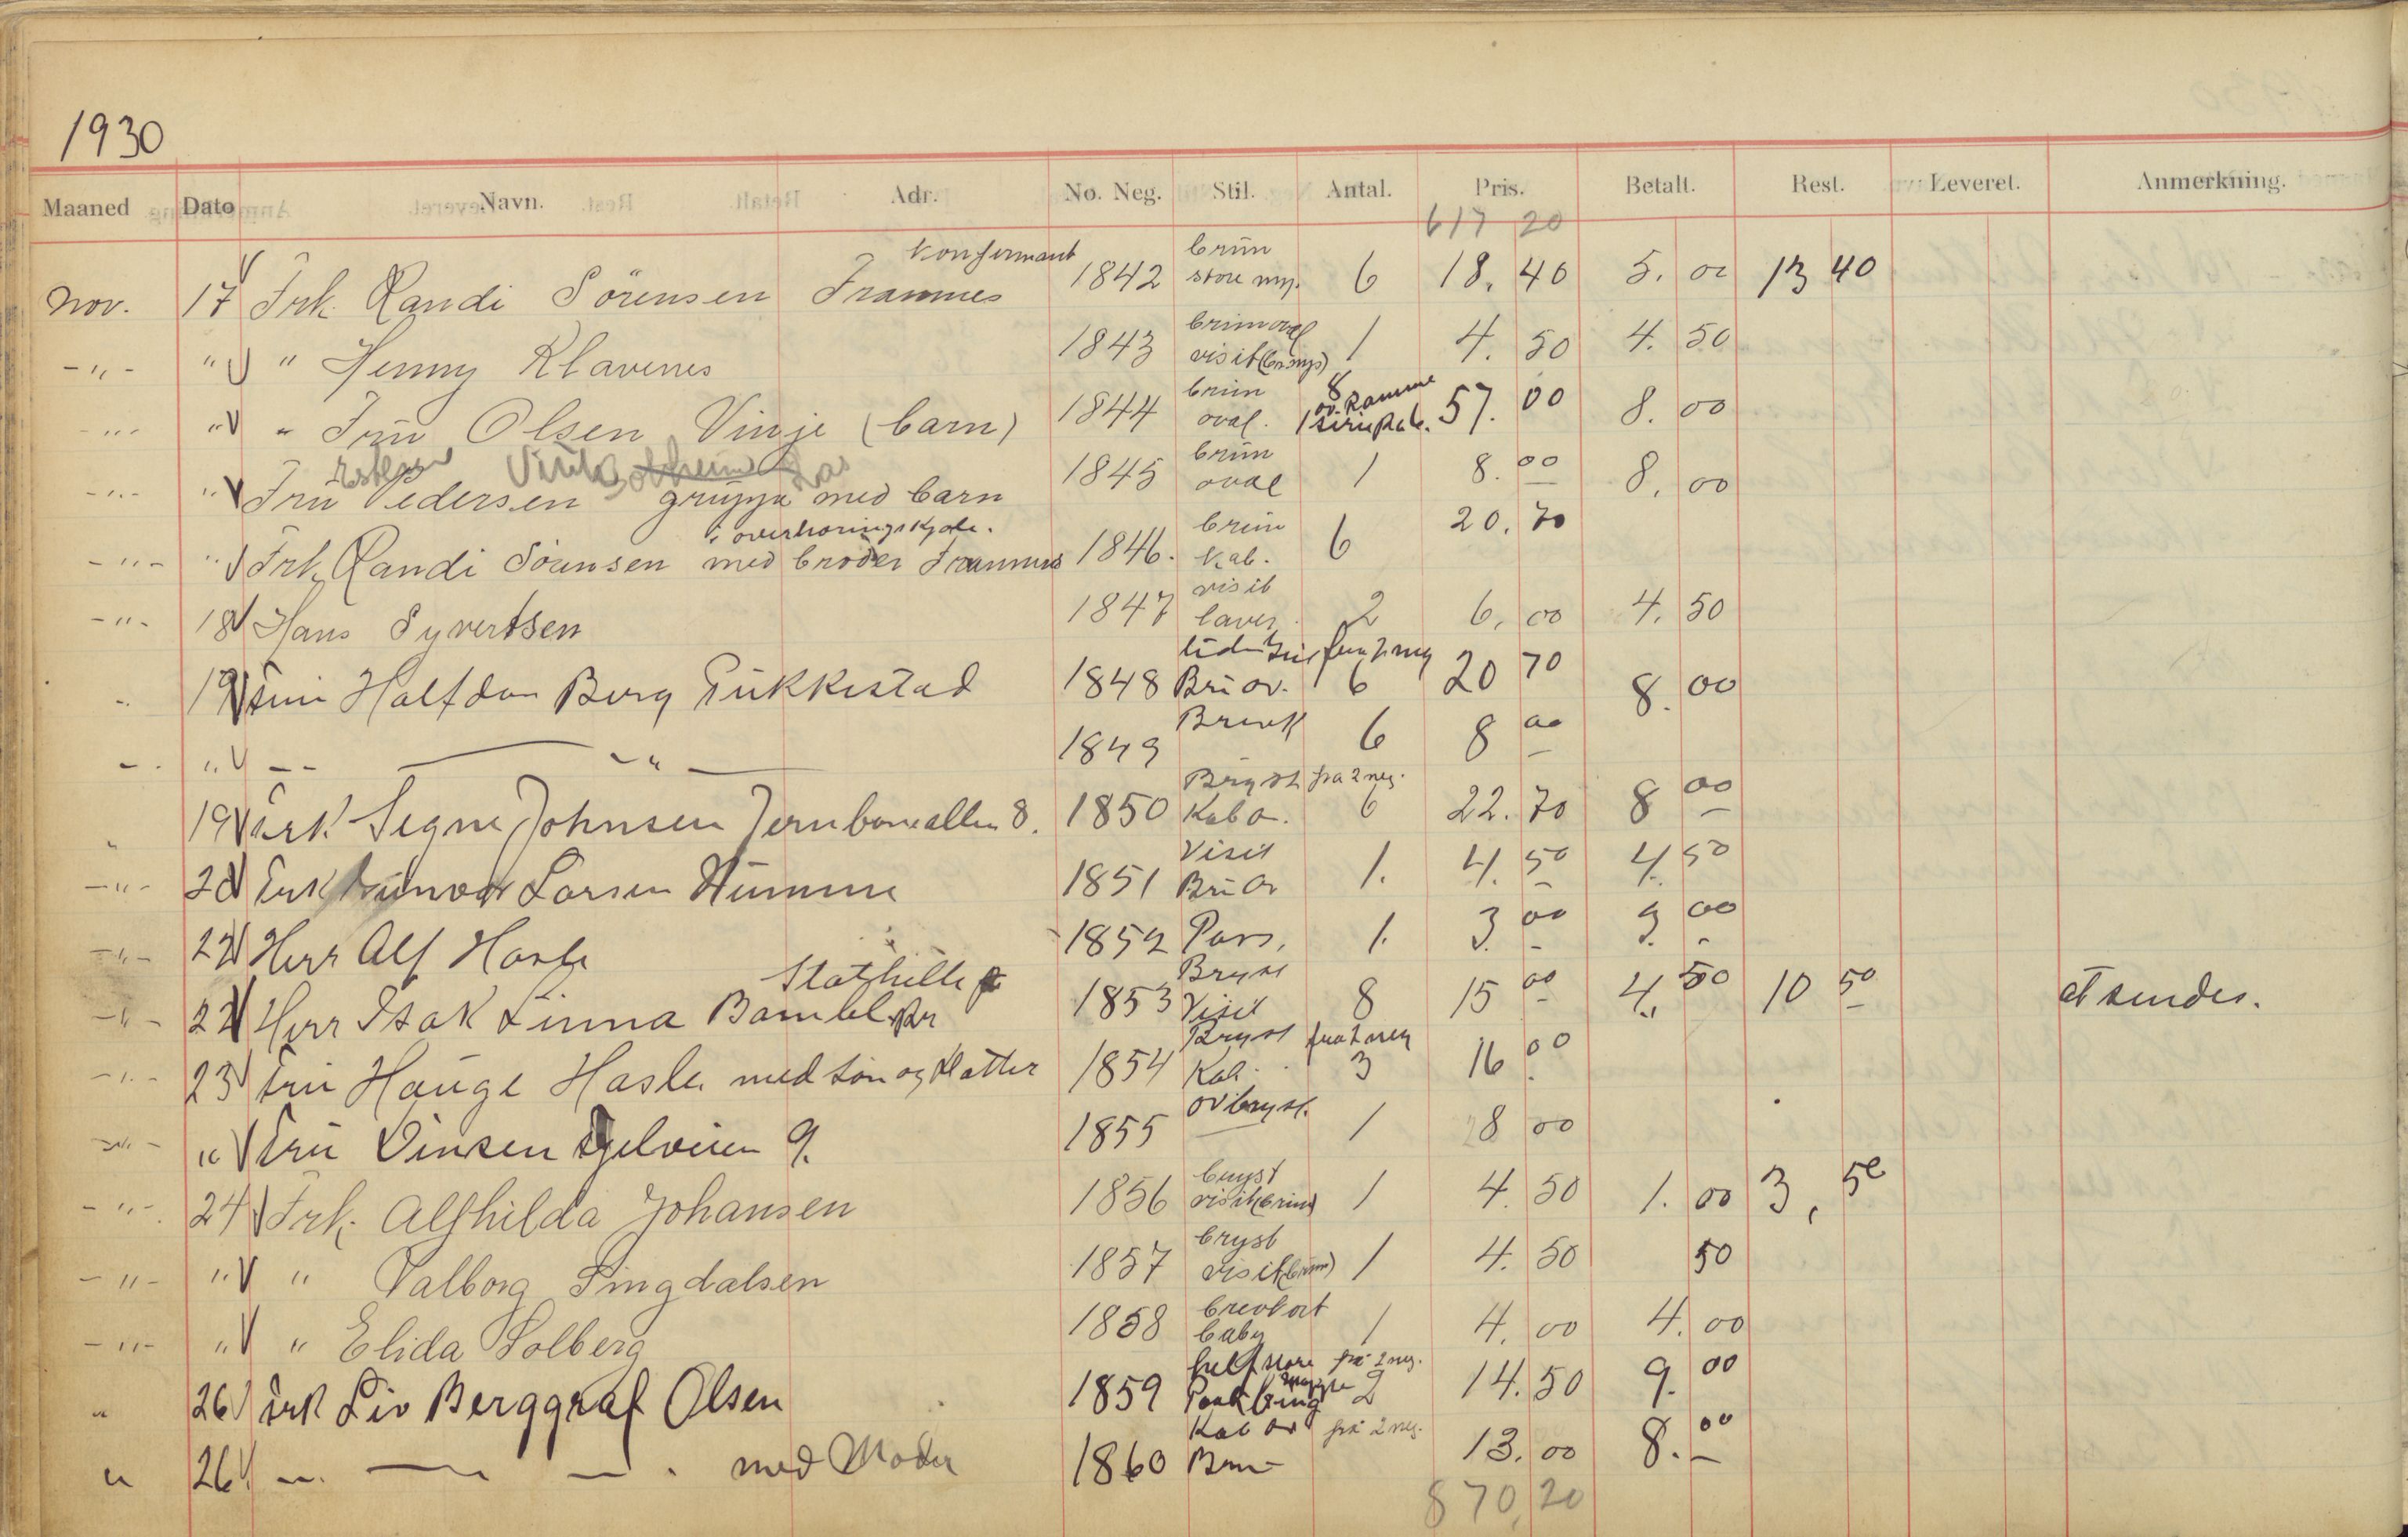 1930
Maaned Dato Navn. Adr. No. Neg. Stil. Antal. Pris. Betalt. Rest. Leveret. Anmerkning.
617 20
Konfirmant brün
Nov. 17 Frk. Randi Sörensen Framnes 1842 store my. 6 18. 40 5. 00 13 40
-"- " " Henny Klavenes 1843 visit 1 4. 50 4. 50
-"- " " Frü Olsen Vinje (barn) 1844 brün oval. 8 ov. Ramme 1 57. 00 8. 00
-"- " Frü Pedersen gruppe med barn 1845 brün oval 1 8. 00 8. 00
i overhøringskjole.
-"- " Frk. Randi Sörensen med broder Framnes 1846. brün Kab. 6 20. 70
-"- 18 Hans Syvertsen 1847 visit 2 6. 00 4. 50
fra 2 neg
" 19 Frü Halfdan Berg Pükkestad 1848 Brü ov. 6 20 70 8. 00
-"- " -- — " — 1849 Brevk 6 8 00
Bryst fra 2 neg.
" 19 Frk Signe Johnsen Jernbanealleen 8. 1850 Kab o. 6 22. 70 8 00
Visit
-"- 20 Frk Gunvor Larsen Nümme 1851 Brü Ov 1. 4. 50 4. 50
-"- 22 Herr Alf Hasle 1852 Pass. 1. 3. 00 3. 00
Stathelle Bryst
-"- 22 Herr Isak Linna Bambl. 1853 Visit 8 15 00 4. 50 10 50 at sendes.
Bryst fra 2 neg
-"- 23 Frü Hauge Hasle med Søn og Datter 1854 Kab. 3 16. 00
-"- " Frü 9. 1855 ov bryst. 1 8 00
bryst
-"- 24 Frk. Alfhilda Johansen 1856 visit(brün) 1 4. 50 1. 00 3, 50
bryst
-"- " " Valborg Lingdalsen 1857 visit(brün) 1 4. 50 50
brevkort
-"- " " Elida Solberg 1858 baby 1 4. 00 4. 00
helf store fra 2 neg.
" 26 Frk Liv Berggraf Olsen 1859 2 14. 50 9. 00
Kab ov fra 2 neg.
" 26 -"- — — med Moder 1860 Brün 13. 00 8. 00
870, 20